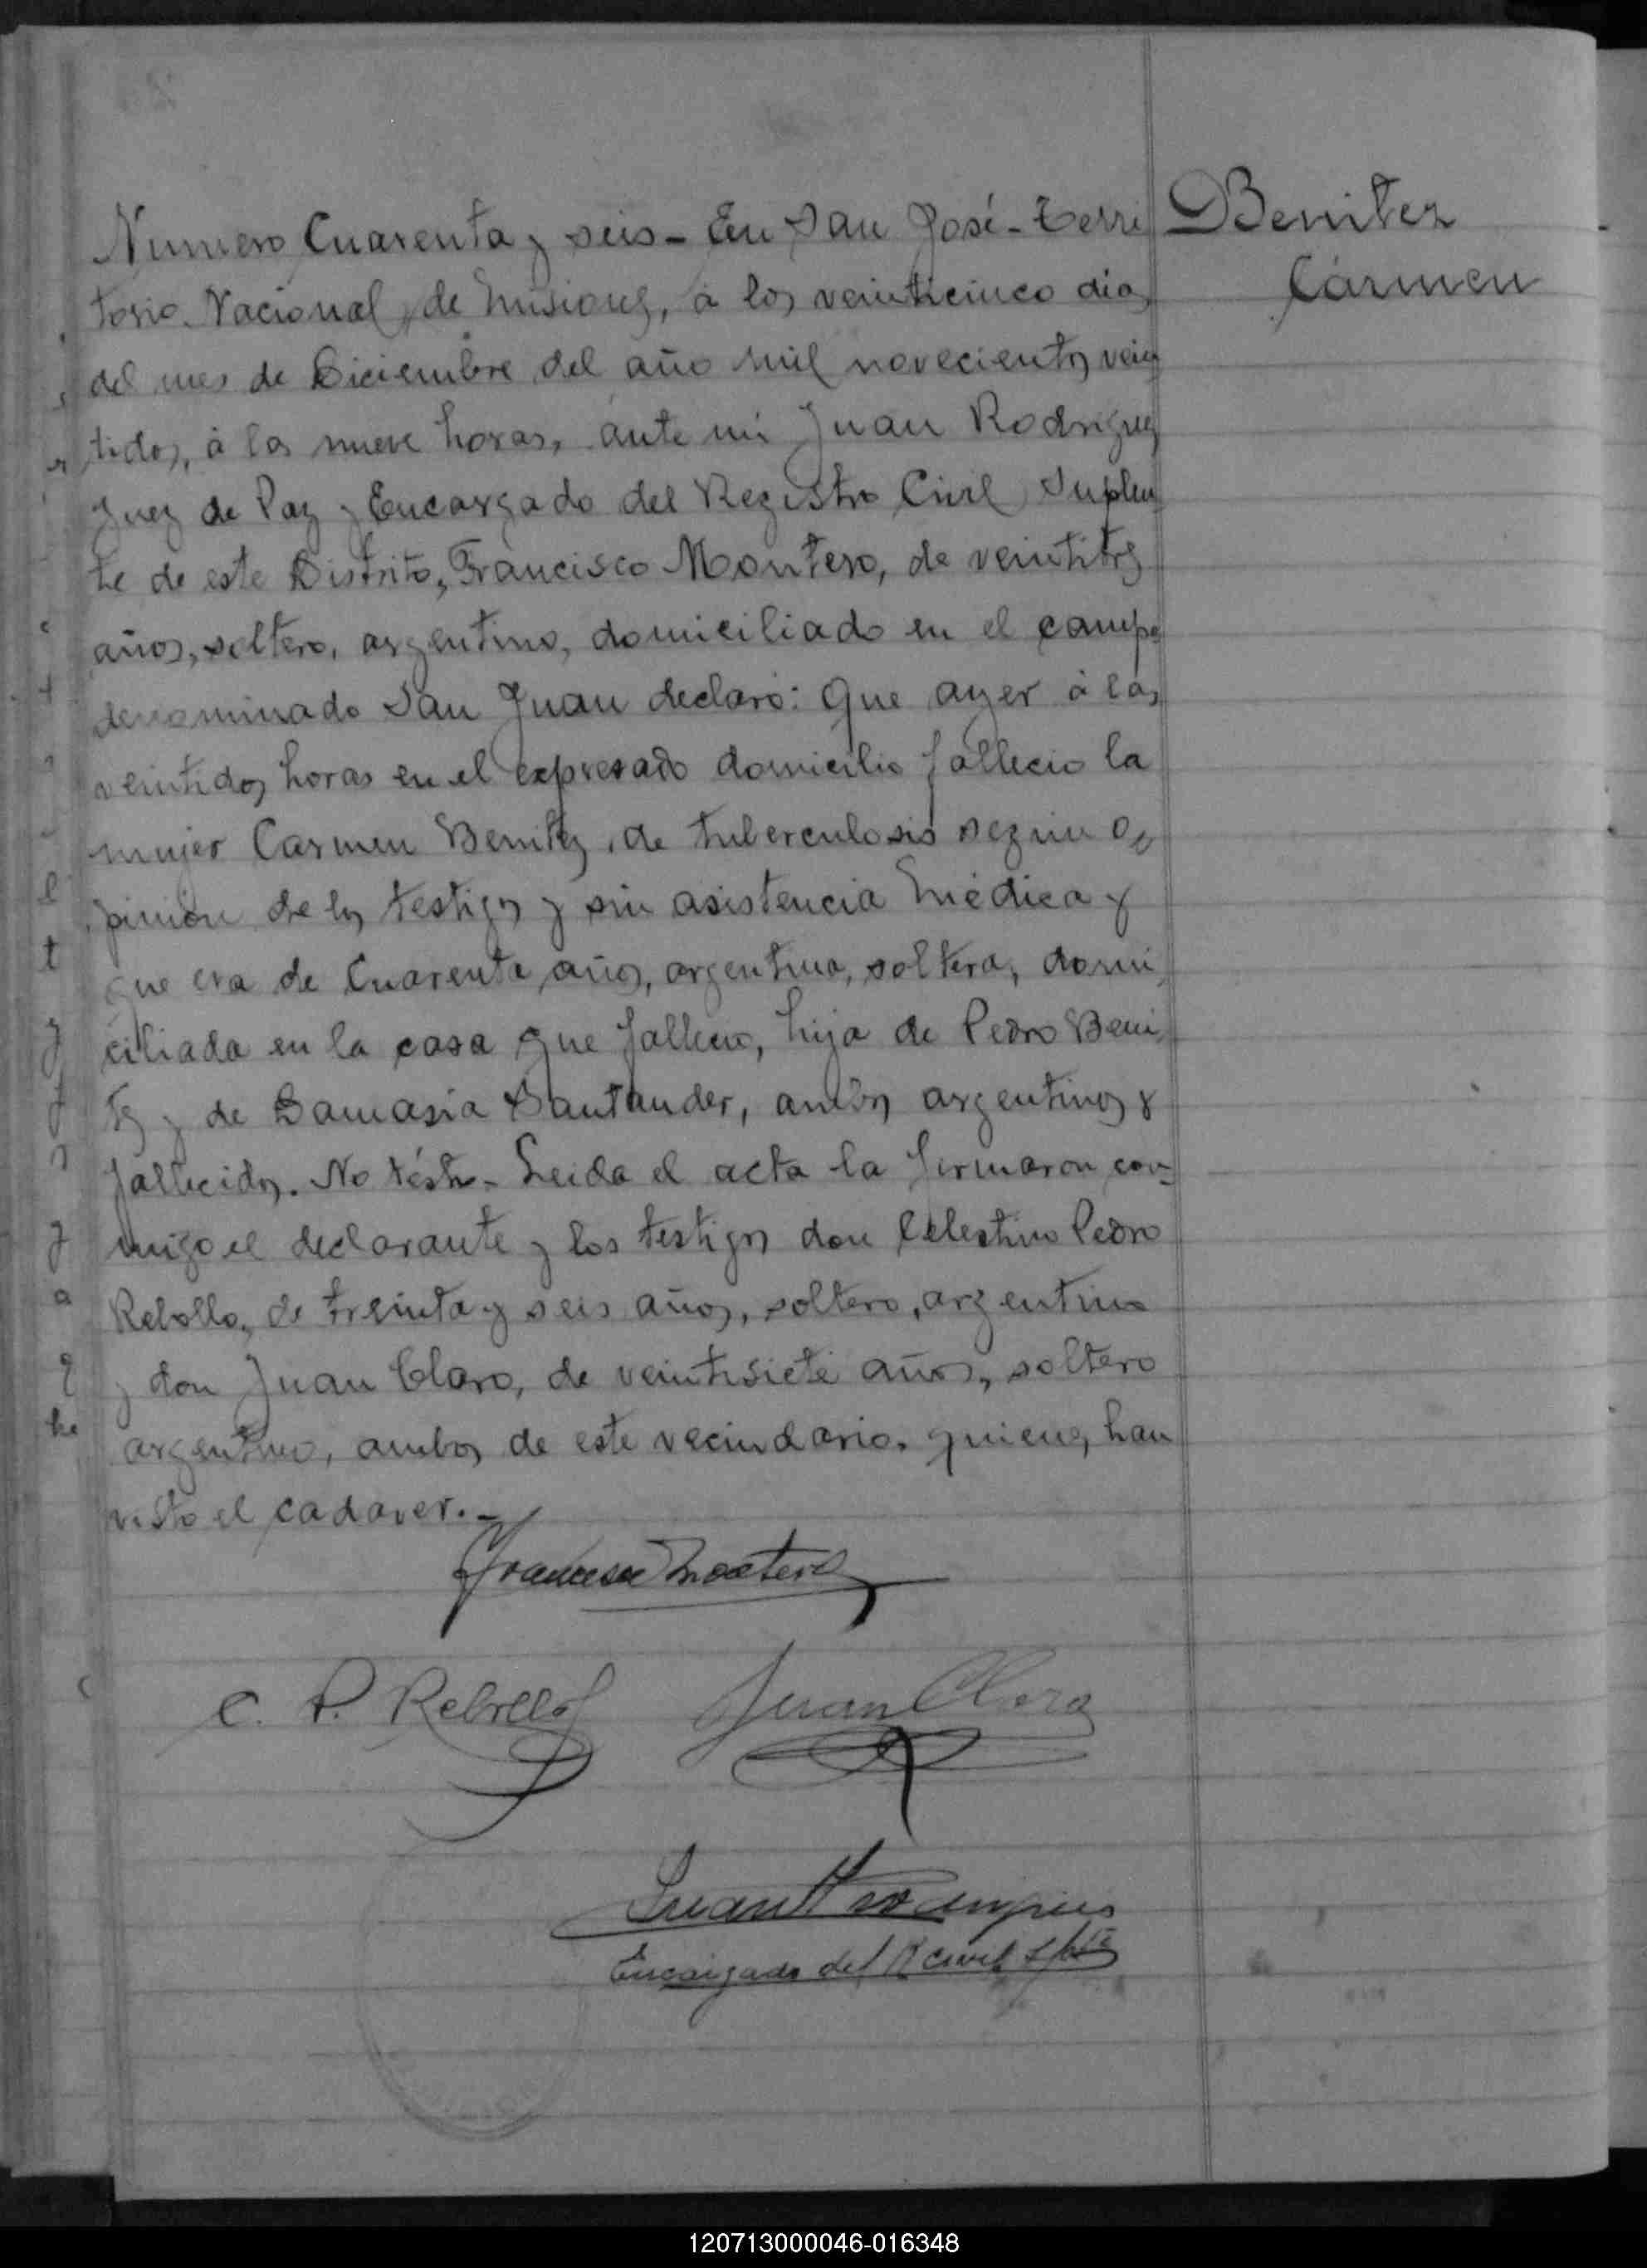 Benitez
Cármen
Numero Cuarenta y seis - En San José - Terri
torio Nacional de Misiones, á los veinticinco dias
del mes de Diciembre del año mil novecientos vein
tidos, á las nueve horas, ánte mi Juan Rodriguez
Juez de Paz y Encargado del Registro Civil Suplen
te de este Distrito, Francisco Montero, de veintitres
años, soltero, argentino, domiciliado en el campo
denominado San Juan declaró: Que ayer á las
veintidos horas en el expresado domicilio fallecio la
mujer Carmen Benitez, de tuberculosis segun o
pinion de los testigos y sin asistencia médica y
que era de Cuarenta años, argentina, soltera, domi
ciliada en la casa que fallecio, hija de Pedro Beni
tez y de Damasia Santander, ambos argentinos y
fallecidos. No téstó - Leida el acta la firmaron con
migo el declarante y los testigos don Celestino Pedro
Rebollo, de treinta y seis años, soltero, argentino
y don Juan Claro, de veintisiete años, soltero
argentino, ambos de este vecindario. quienes han
visto el cadaver. -
Francisco Montero
C. P. Rebollo Juan Claro
Juan Rodriguez
Encargado del R Civil Spte
120713000046-016348